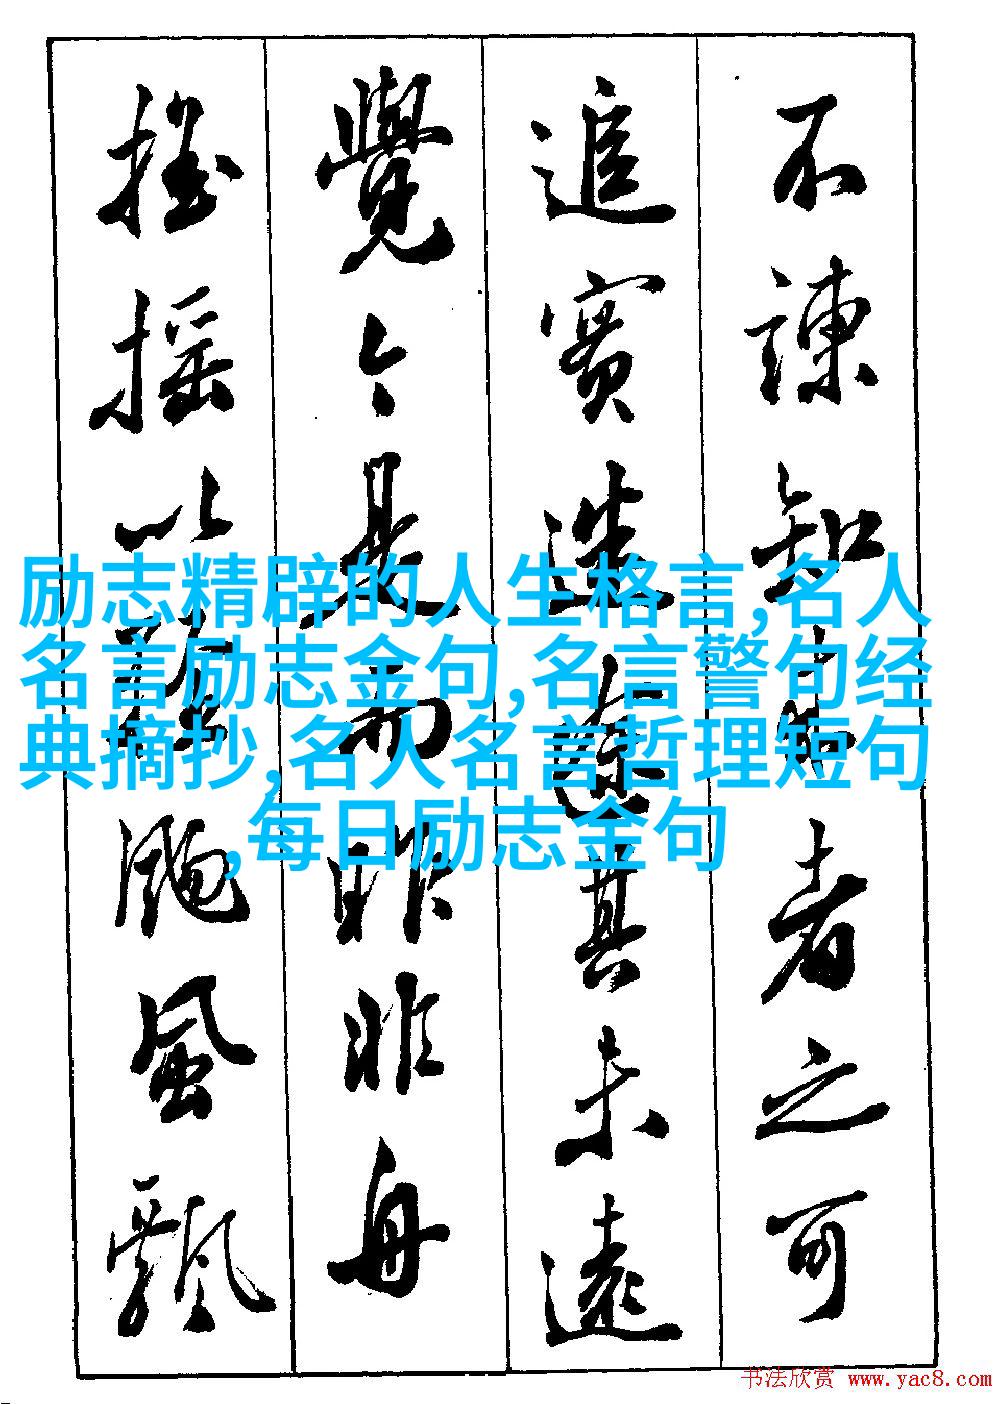 不諫知来者之可
追實迷途其未遠
覺今是而昨非舟
摇摇以輕颺風飄
励志精辟的人生格言,名人
名言励志金句,名言警句经
典摘抄,名人名言哲理短句
,每日励志金句
书法欣赏 www.yac8.com